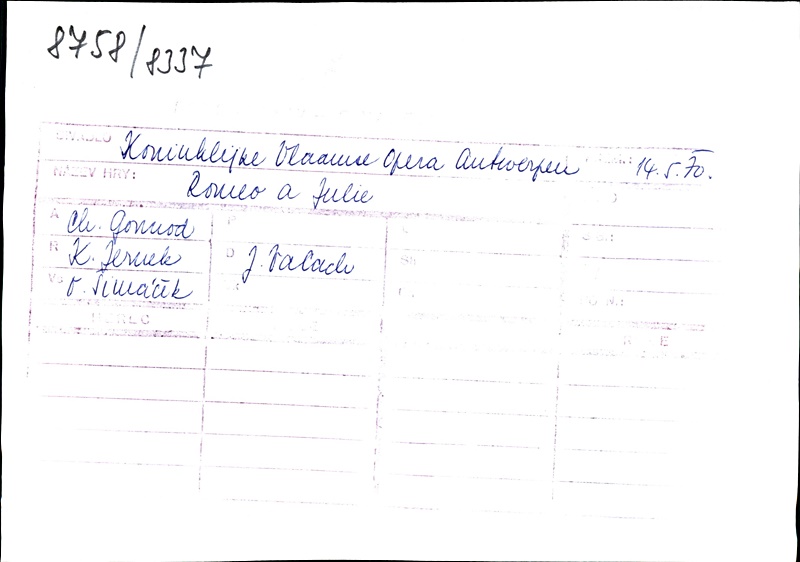 8758/8337
DIVADLO Koninklijke Vlaamse Opera Antwerpen 14.5.70.
NÁZEV HRY: Romeo a Julie
A Ch. Gounod P
R K. Jernek D J. Valach
Vs O. Šimáček
HEREC